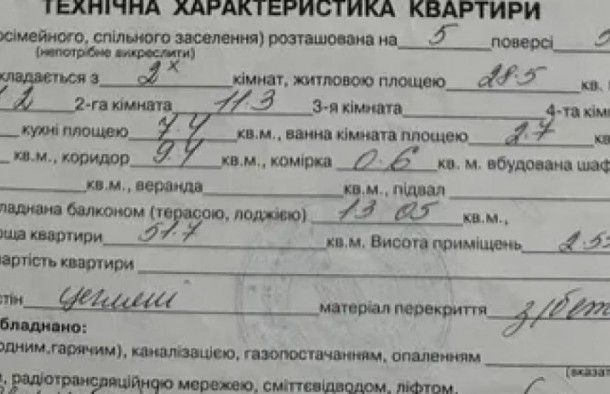 ТЕХНІЧНА ХАРАКТЕРИСТИКА КВАРТИРИ
осімейного, спільного заселення) розташована на 5 поверсі 5
(непотрібне викреслити)
кладається з 2х кімнат, житловою площею 28.5 кв.
.2 2-га кімната 11.3 3-я кімната 4-та кім
кухні площею 7.4 кв.м., ванна кімната площею 2.7 кв
кв.м., коридор 9.4 кв.м., комірка 0.6 кв. м. вбудована шаф
кв.м., веранда кв.м., підвал
ладнана балконом (терасою, лоджією) 13 05 кв.м.,
оща квартири 51.7 кв.м. Висота приміщень 2.55
артість квартири
стін цегляні матеріал перекриття з/бет
бладнано:
одним,гарячим), каналізацією, газопостачанням, опаленням
(вказат
, радіотрансляційною мережею, сміттєвідводом, ліфтом,